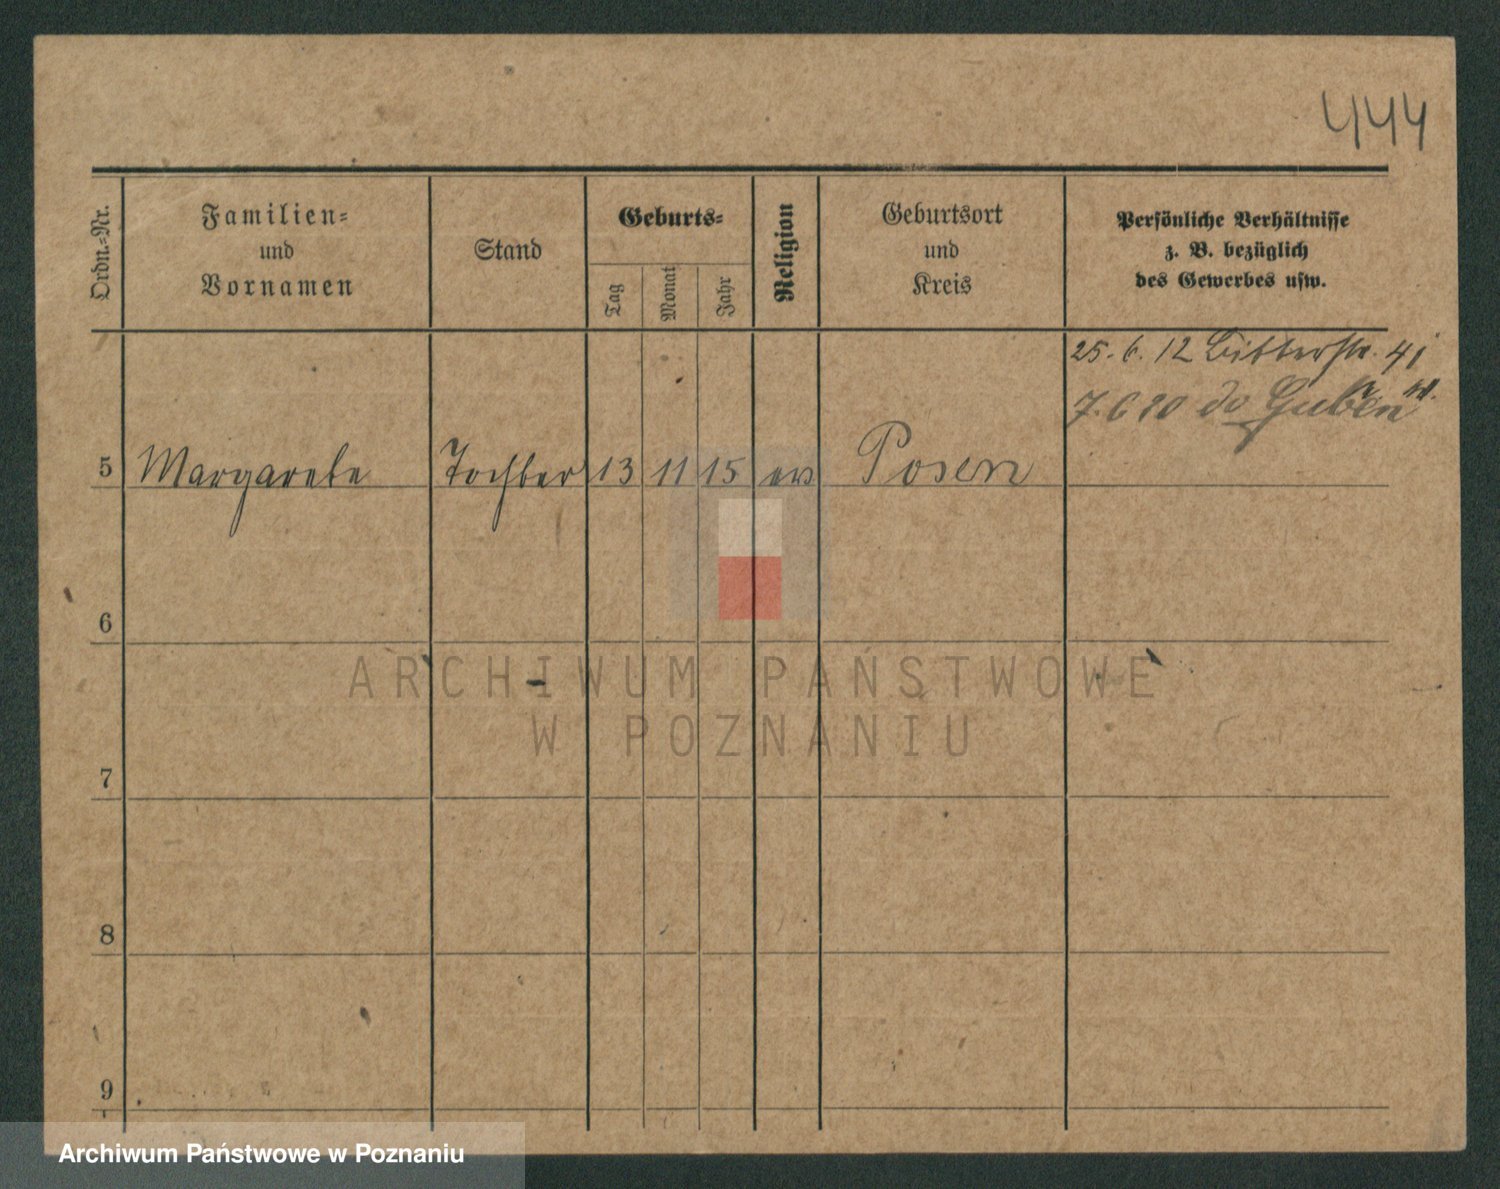 444
Ordn.=Nr.
Familien=
und
Vornamen
Stand
Geburts=
Tag
Monat
Jahr
Religion
Geburtsort
und
Kreis
Persönliche Verhältnisse
z. B. bezüglich
des Gewerbes usw.
25. 6. 12 Bitterstr. 41
7. 6 20 do Guben
5 Margarete Tochter 13 11 15 ev Posen
6
ARCHIWUM PAŃSTWOWE
W POZNANIU
7
8
9
Archiwum Państwowe w Poznaniu